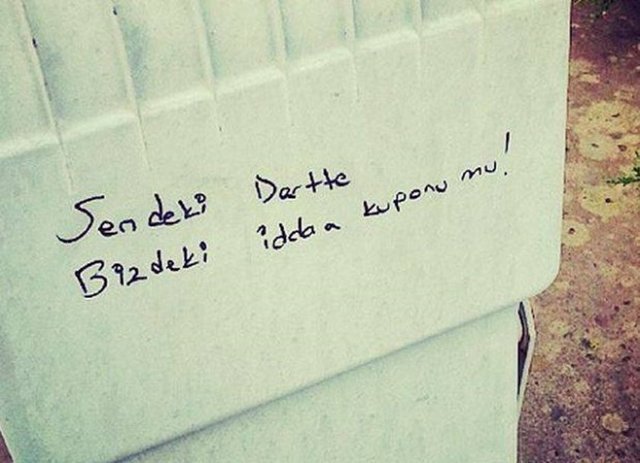 Sendeki Dertte
Bizdeki iddaa kuponu mu!